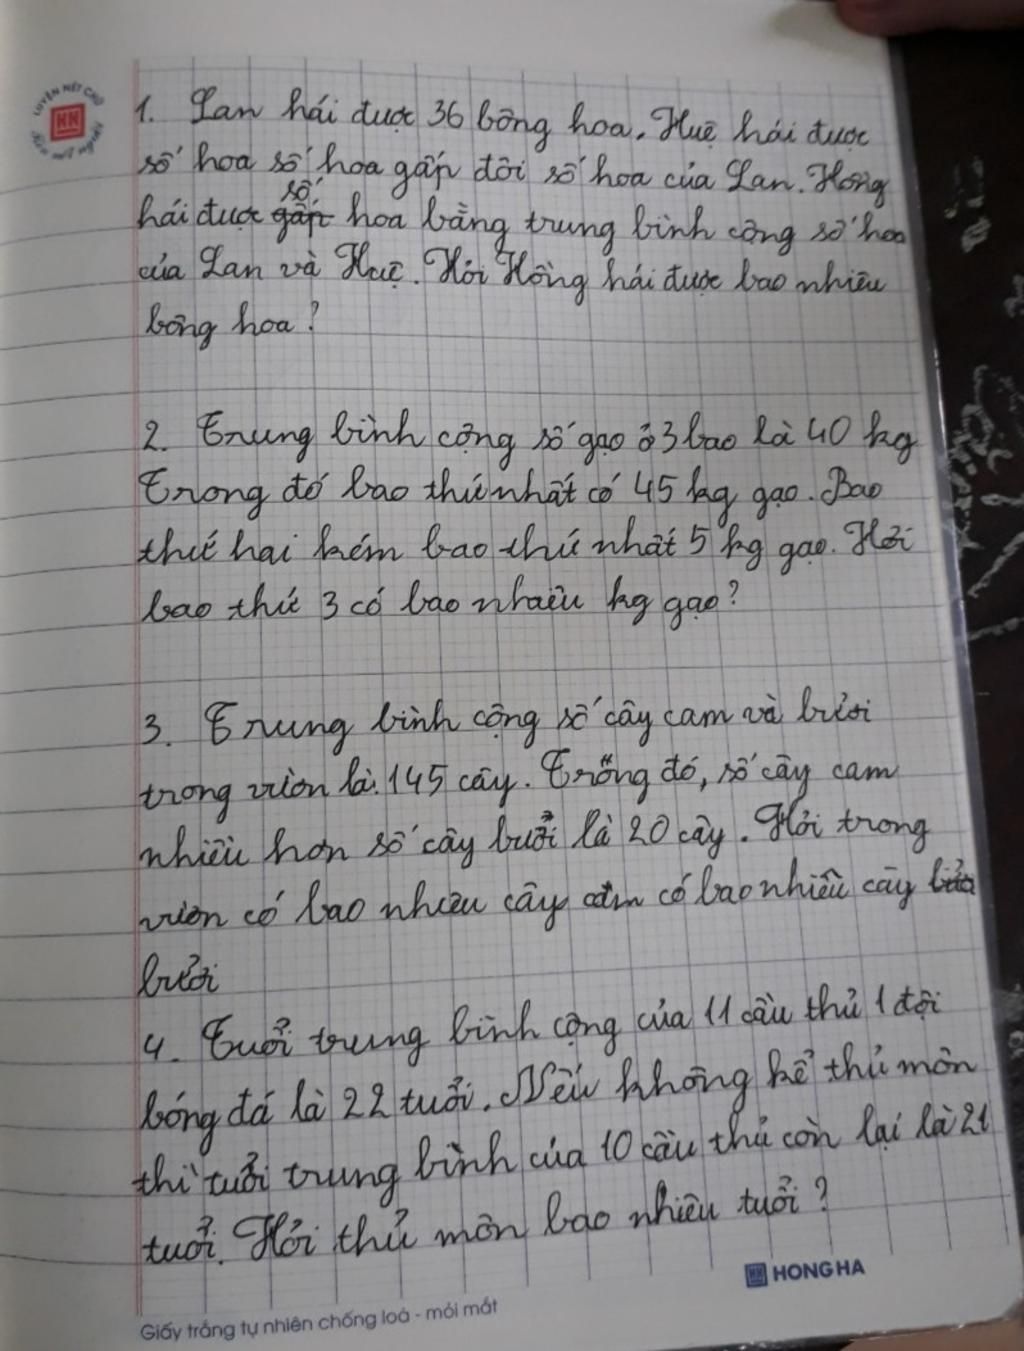 LUYỆN NÉT CHỮ
HH
1. Lan hái được 36 bông hoa. Huệ hái được
số hoa số hoa gấp đôi số hoa của Lan. Hồng
hái được số hoa bằng trung bình cộng số hoa
của Lan và Huệ. Hỏi Hồng hái được bao nhiêu
bông hoa?
2. Trung bình cộng số gạo ở 3 bao là 40 kg
Trong đó bao thứ nhất có 45 kg gạo. Bao
thứ hai kém bao thứ nhất 5 kg gạo. Hỏi
bao thứ 3 có bao nhiêu kg gạo?
3. Trung bình cộng số cây cam và bưởi
trong vườn là 145 cây. Trong đó, số cây cam
nhiều hơn số cây bưởi là 20 cây. Hỏi trong
vườn có bao nhiêu cây cam có bao nhiêu cây
bưởi
4. Tuổi trung bình cộng của 11 cầu thủ 1 đội
bóng đá là 22 tuổi. Nếu không kể thủ môn
thì tuổi trung bình của 10 cầu thủ còn lại là 21
tuổi. Hỏi thủ môn bao nhiêu tuổi?
HH HONG HA
Giấy trắng tự nhiên chống loá - mỏi mắt